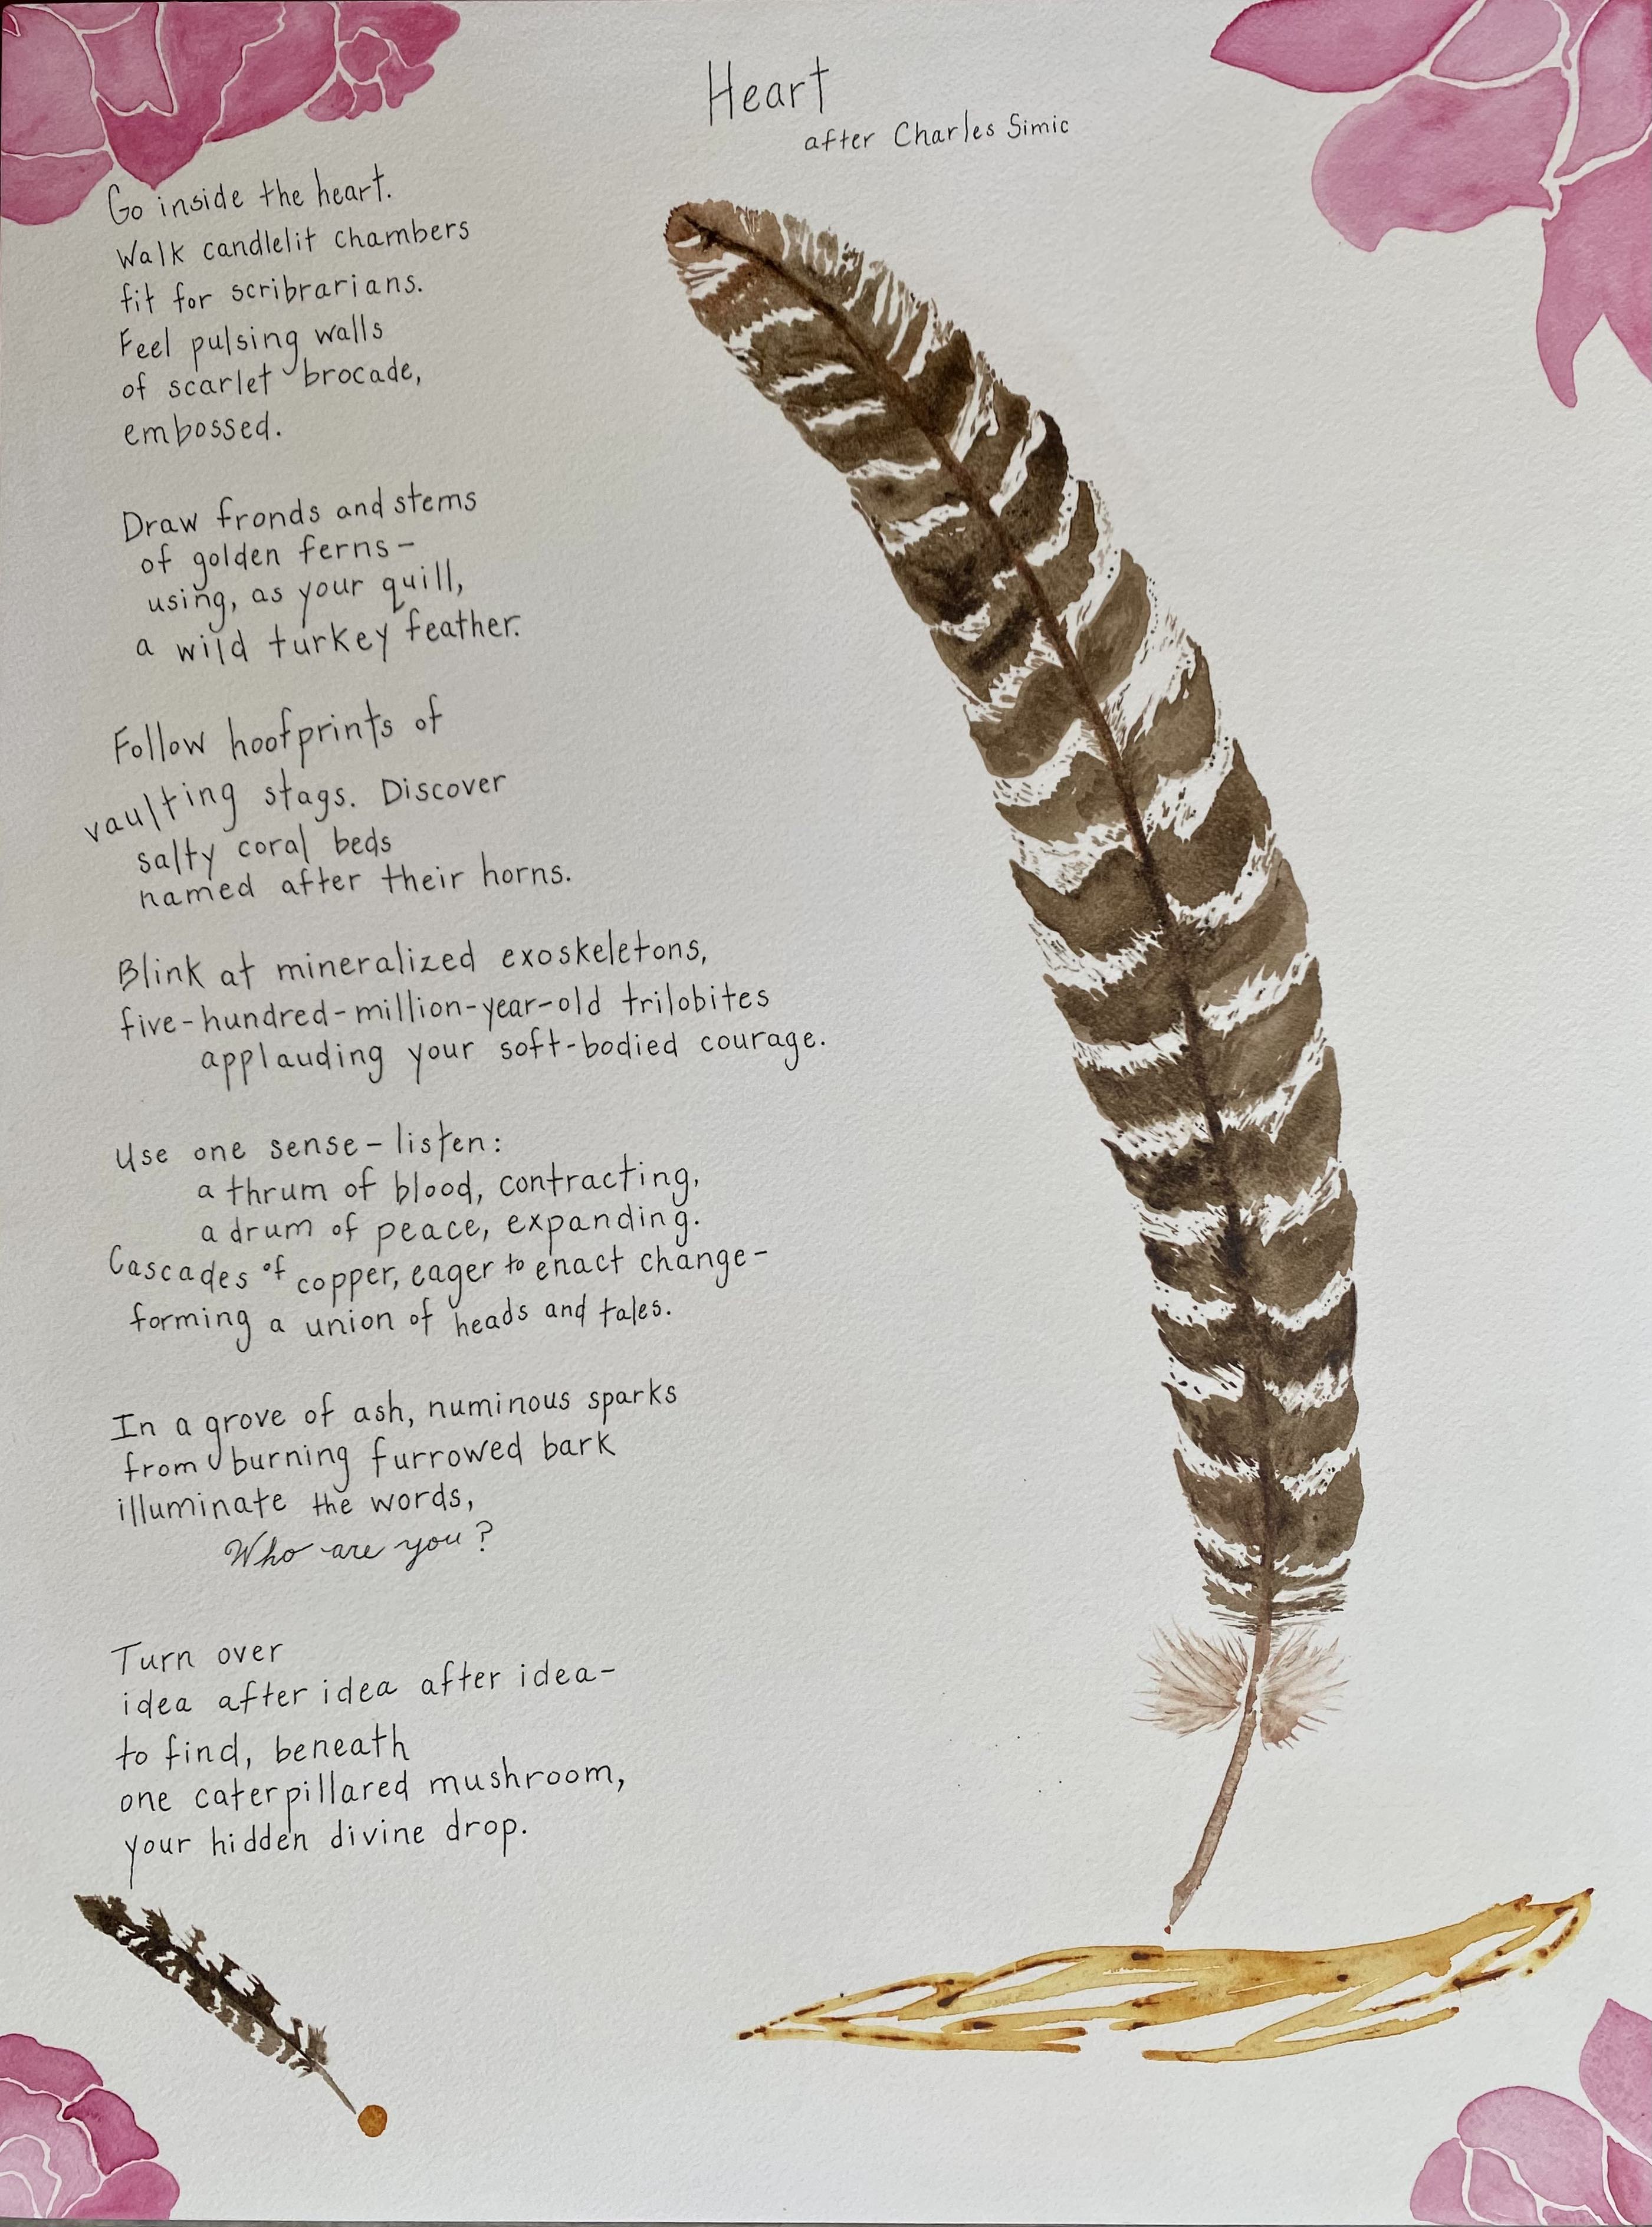 Heart
after Charles Simic
Go inside the heart.
Walk candlelit chambers
fit for scribrarians.
Feel pulsing walls
of scarlet brocade,
embossed.
Draw fronds and stems
of golden ferns-
using, as your quill,
a wild turkey feather.
Follow hoofprints of
vaulting stags. Discover
salty coral beds
named after their horns.
Blink at mineralized exoskeletons,
five-hundred-million-year-old trilobites
applauding your soft-bodied courage.
Use one sense-listen:
a thrum of blood, contracting,
a drum of peace, expanding.
Cascades of copper, eager to enact change-
forming a union of heads and tales.
In a grove of ash, numinous sparks
from burning furrowed bark
illuminate the words,
Who are you?
Turn over
idea after idea after idea-
to find, beneath
one caterpillared mushroom,
your hidden divine drop.